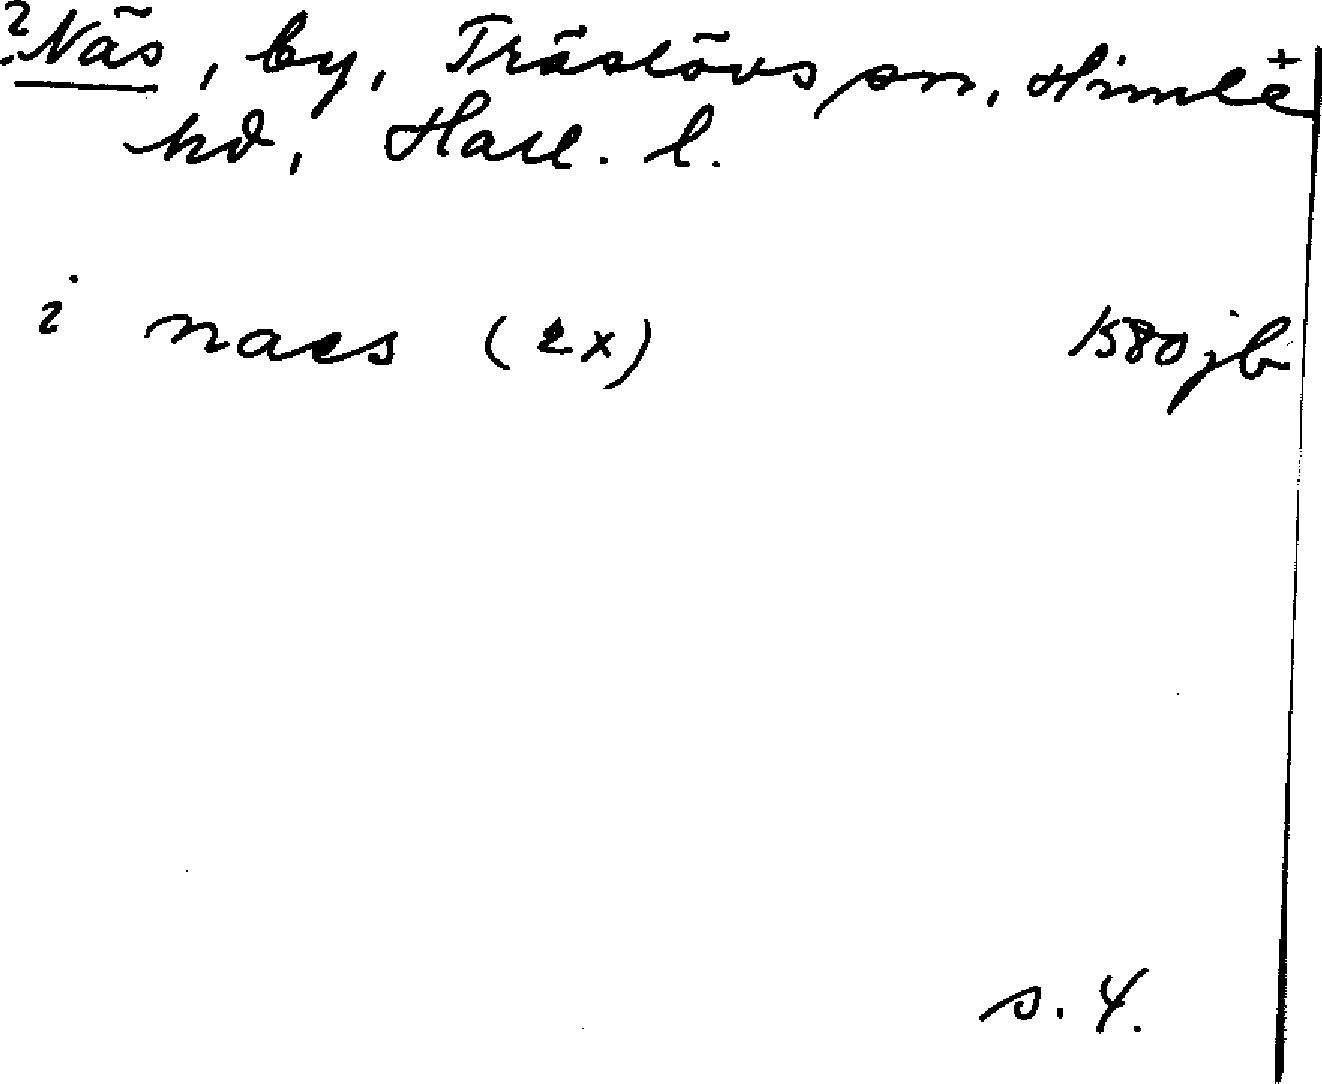 ?Näs, by, Träslövs sn, Himle +
hd, Hall. l.
i naes (2x) 1580 jb
s. 4.